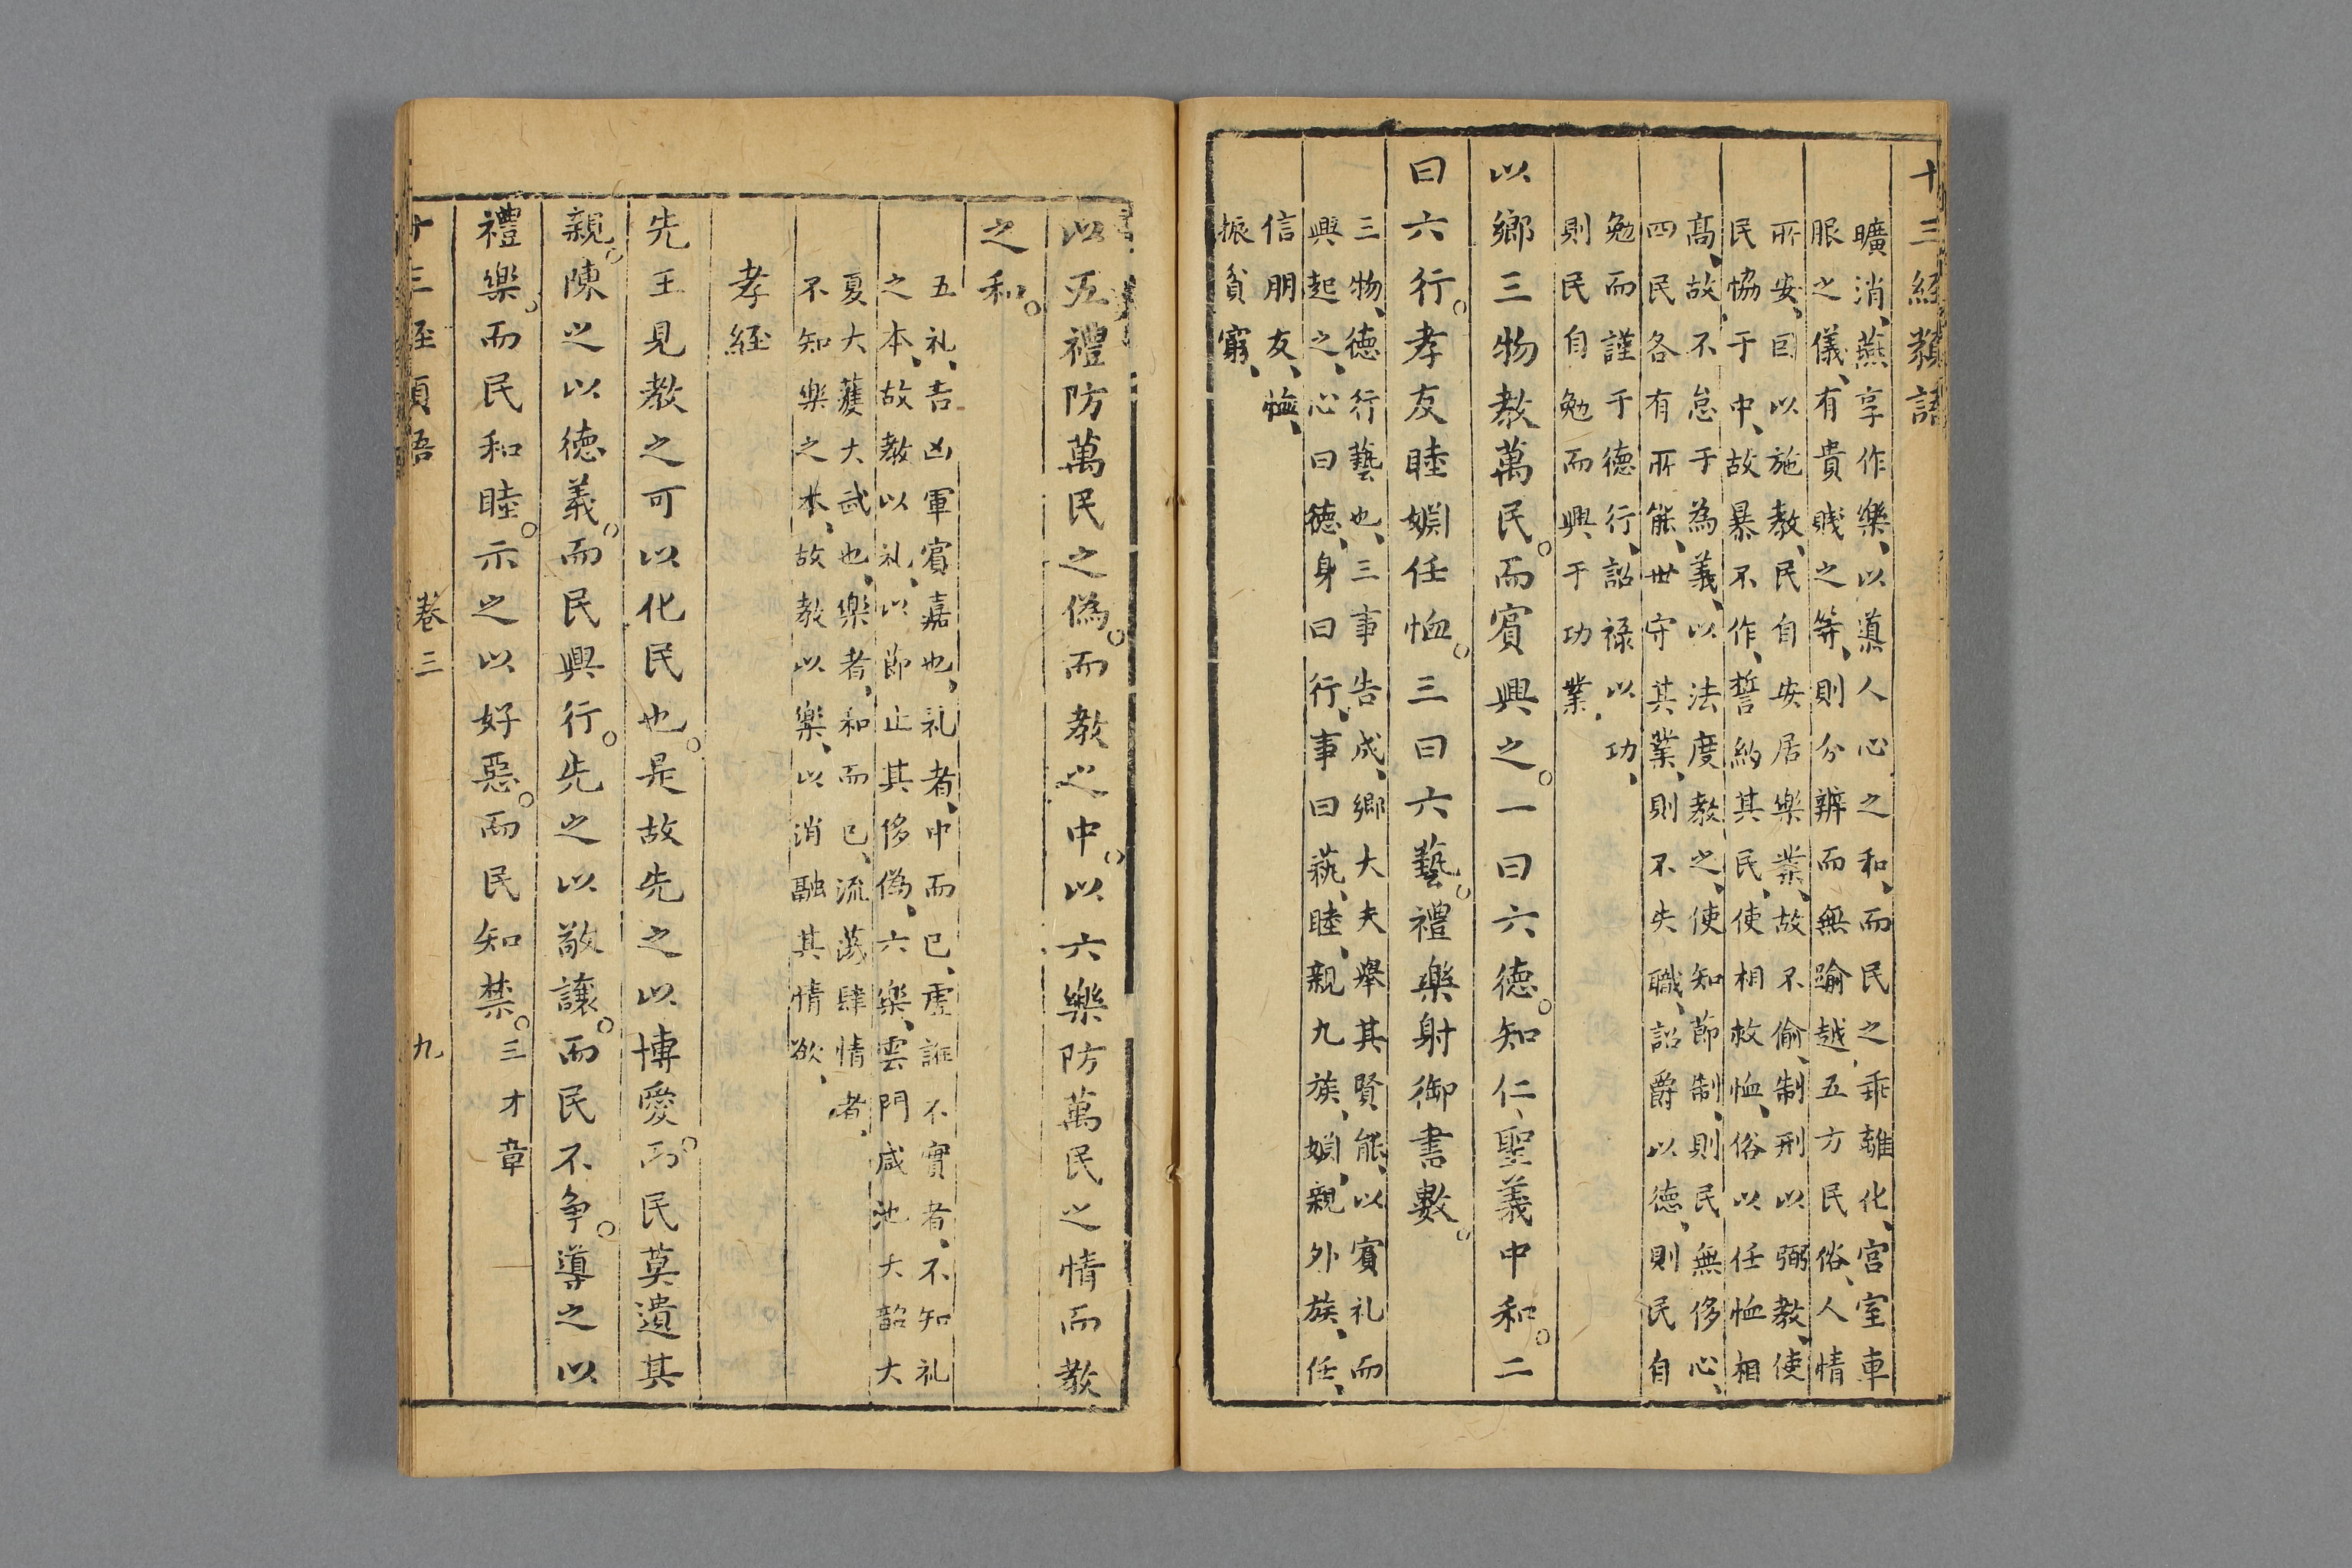 十三經類語
曠消、燕享作樂、以導人心之和、而民之乖離化、宫室車
服之儀、有貴賤之等、則分辨而無踰越、五方民俗、人情
所安、因以施教、民自安居樂業、故不偷、制刑以弼教、使
民恊于中、故暴不作、誓約其民、使相救恤、俗以任恤相
高、故不怠于為義、以法度教之、使知節制、則民無侈心、
四民各有所能、世守其業、則不失職、詔爵以德、則民自
勉而謹于德行、詔禄以功、
則民自勉而興于功業、
以鄉三物教萬民。而賓興之。一曰六德。知仁聖義中和。二
曰六行。孝友睦婣任恤。三曰六藝。禮樂射御書數。
三物、德行藝也、三事告成、鄉大夫舉其賢能、以賓礼而
興起之、心曰德、身曰行、事曰蓺、睦、親九族、婣、親外族、任、
信朋友、恤、
振貧窮、
以五禮防萬民之偽。而教之中。以六樂防萬民之情而教
之和。
五礼、吉凶軍賓嘉也、礼者、中而已、虛誑不實者、不知礼
之本、故教以礼、以節止其侈偽、六樂、雲門咸池大韶大
夏大蒦大武也、樂者、和而已、流蕩肆情者、
不知樂之本、故教以樂、以消融其情欲、
孝經
先王見教之可以化民也。是故先之以博愛。而民莫遺其
親。陳之以德義。而民興行。先之以敬讓。而民不争。導之以
禮樂。而民和睦。示之以好惡。而民知禁。三才章
十三經類語 卷三 九